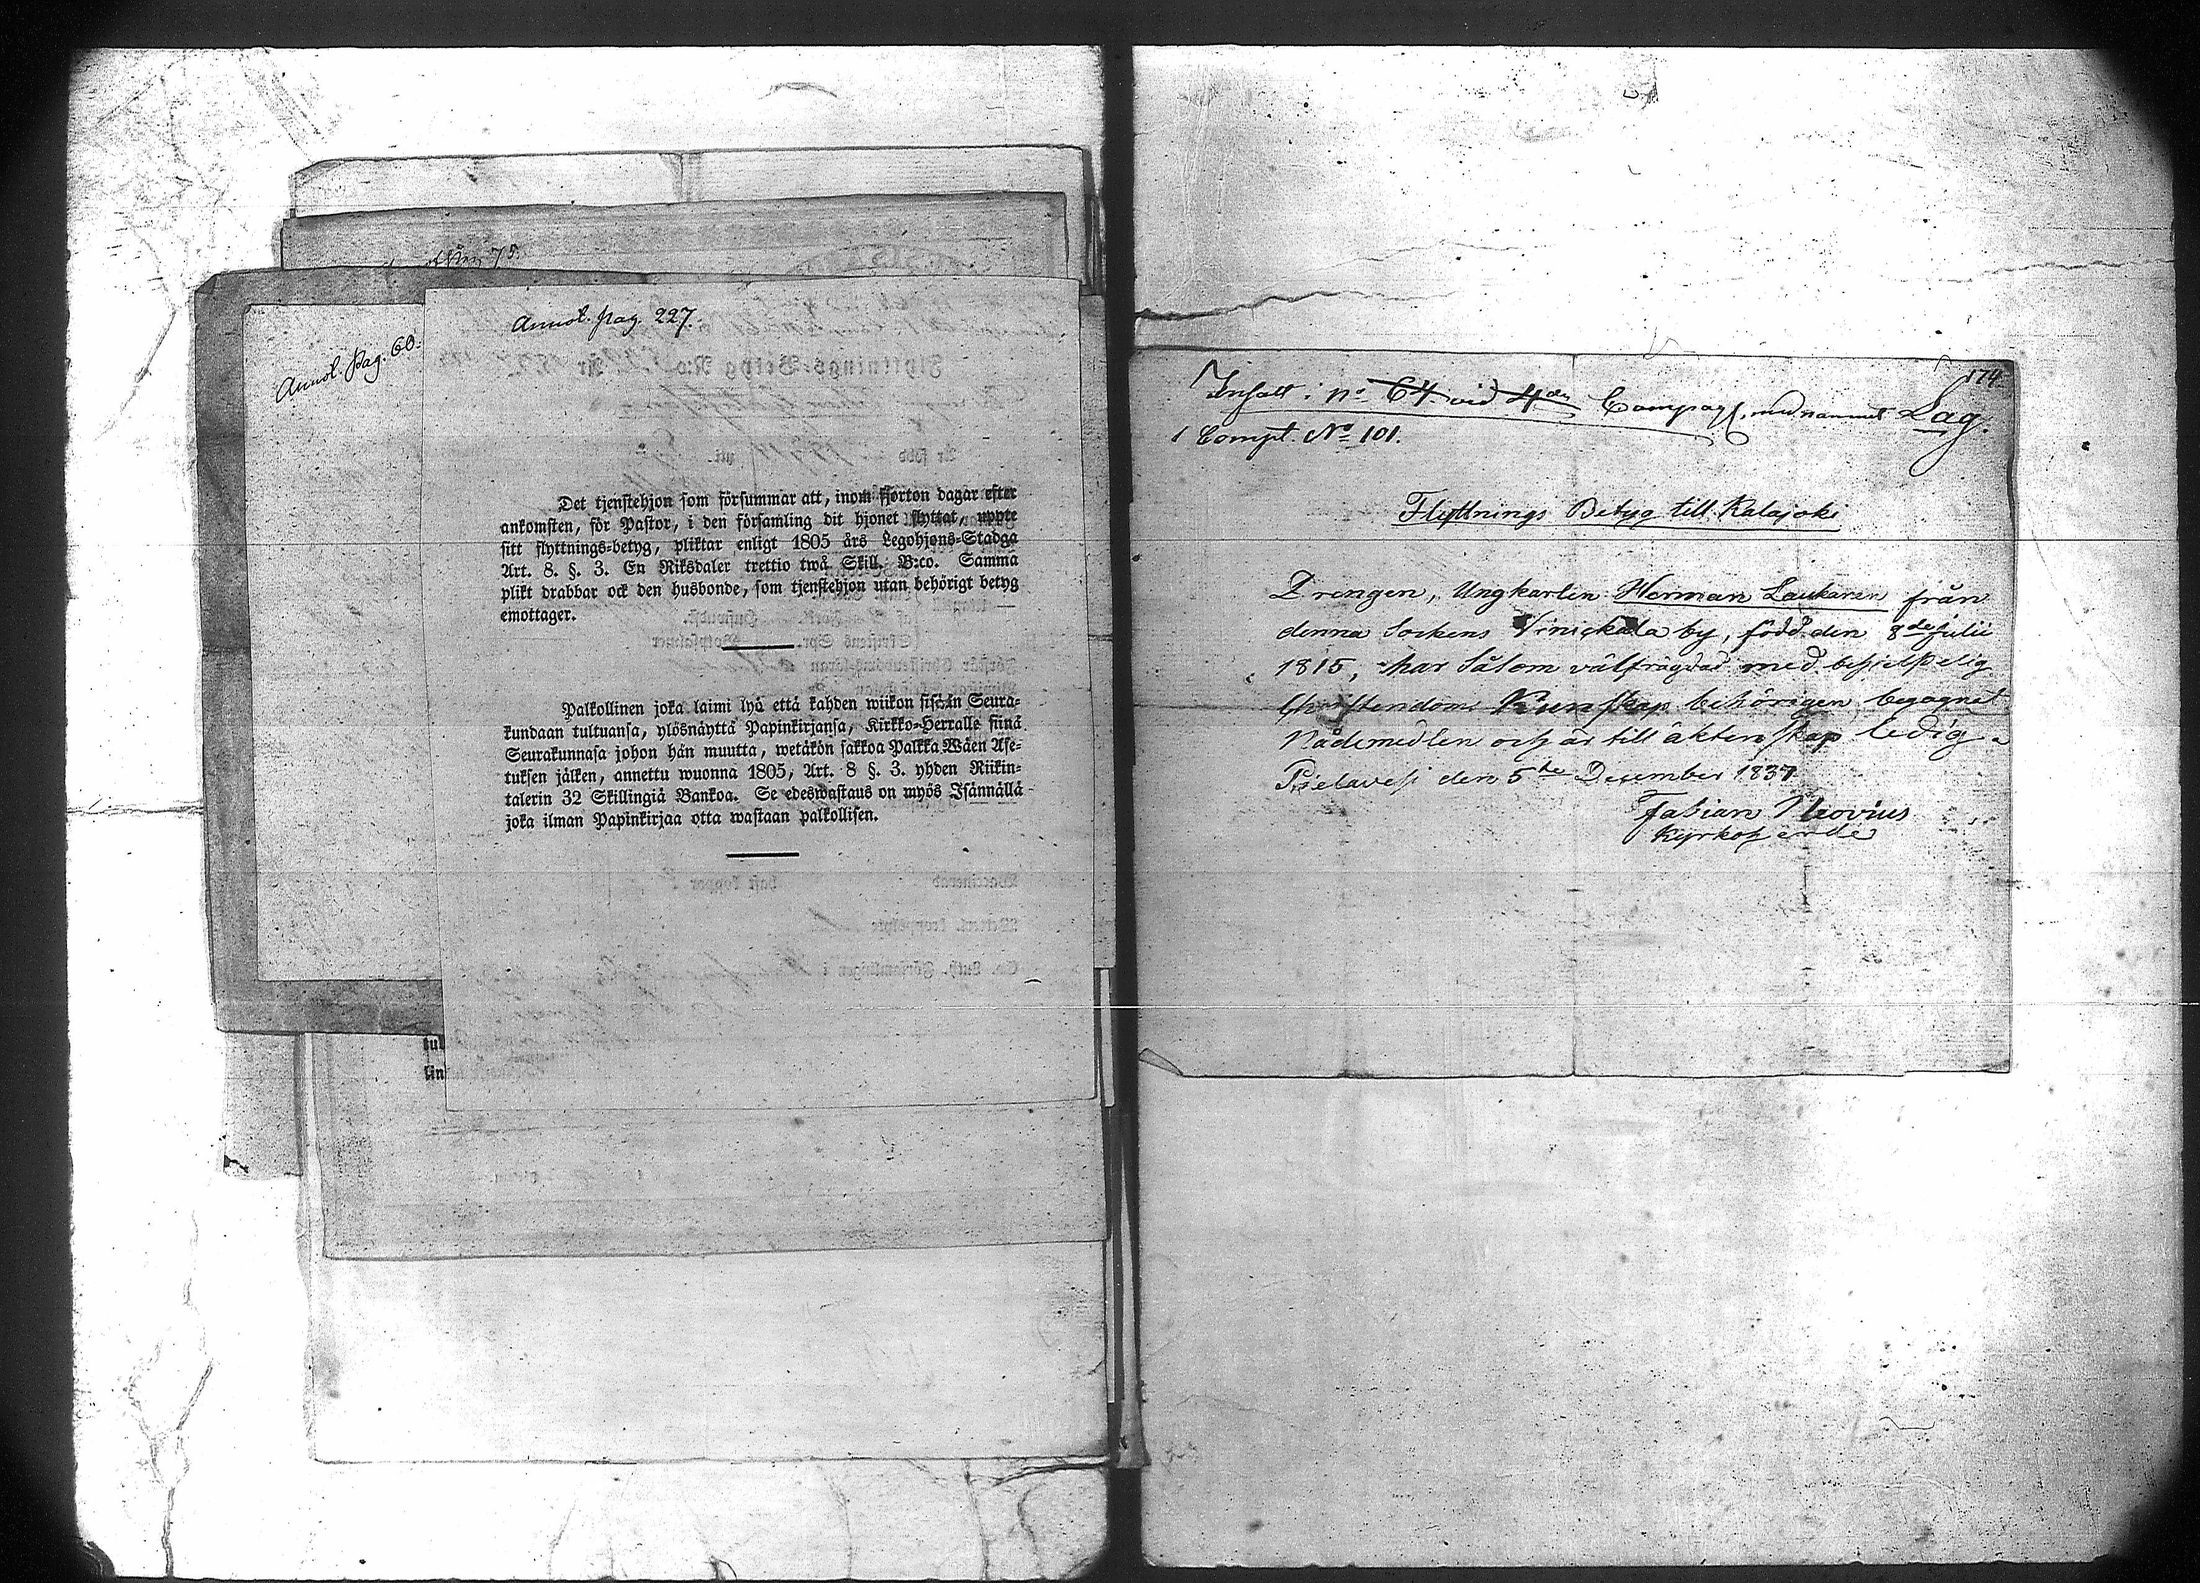 Annot. Pag. 60.
Annot. pag. 227.
Det tjenstehjon som försummar att, inom fjorton dagar efter
ankomsten, för Pastor, i den församling dit hjonet flyttat, uppte
sitt flyttnings-betyg, pliktar enligt 1805 års Legohjons-Stadga
Art. 8. §. 3. En Riksdaler trettio twå Skill. B:co. Samma
plikt drabbar ock den husbonde, som tjenstehjon utan behörigt betyg
emottager.
Palkollinen joka laimi lyä että kahden wiikon sisään Seura-
kundaan tultuansa, ylösnäyttä Papinkirjansa, Kirkko-Herralle siinä
Seurakunnasa johon hän muutta, wetäkön sakkoa Palkka Wäen Ase-
tuksen jälken, annettu wuonna 1805, Art. 8 §. 3. yhden Riikin-
talerin 32 Skillingiä Bankoa. Se edeswastaus on myös Isännällä
joka ilman Papinkirjaa otta wastaan palkollisen.
174
No 64 vid 4de Compag, med namnet Lag.
1 Compt. No 101.
Flyttnings Betyg till Kalajoki
Drengen, Ungkarlen Herman Laukanen från
denna Sockens by, född den 8de Julii
1815, har såsom välfrägdad med behjelpelig
Christendoms Kunskap behörigen begagnat
Nådemedlen och är till äktenskap ledig.
Pielavesi den 5te December 1837
Fabian Neovius
Kyrkoherde